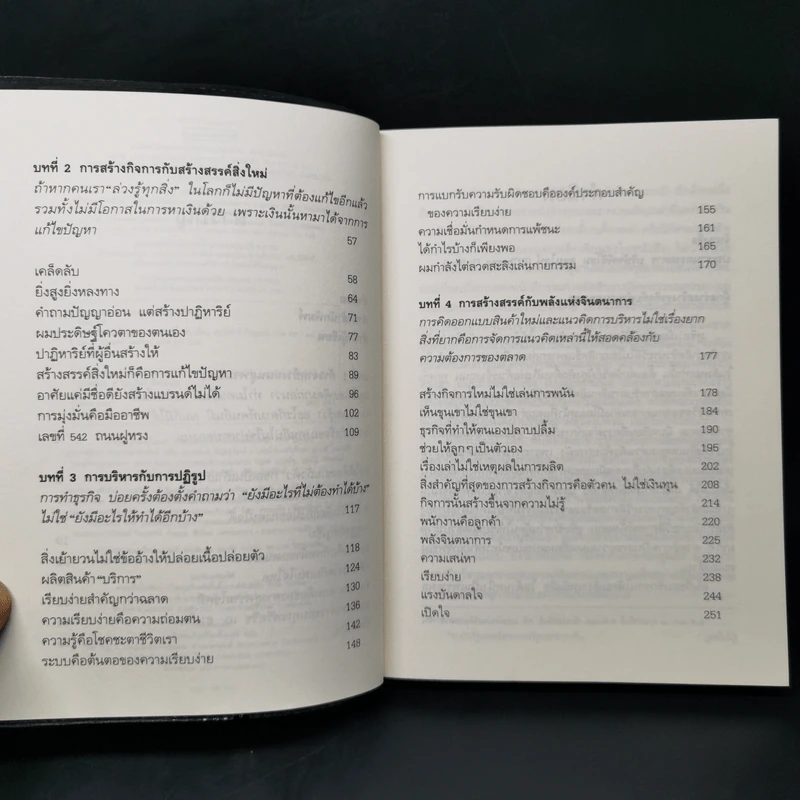 บทที่ 2 การสร้างกิจการกับสร้างสรรค์สิ่งใหม่
ถ้าหากคนเรา “ล่วงรู้ทุกสิ่ง” ในโลกก็ไม่มีปัญหาที่ต้องแก้ไขอีกแล้ว
รวมทั้งไม่มีโอกาสในการหาเงินด้วย เพราะเงินนั้นหามาได้จากการ
แก้ไขปัญหา 57
เคล็ดลับ 58
ยิ่งสูงยิ่งหลงทาง 64
คำถามปัญญาอ่อน แต่สร้างปาฏิหาริย์ 71
ผมประดิษฐ์โควตาของตนเอง 77
ปาฏิหาริย์ที่ผู้อื่นสร้างให้ 83
สร้างสรรค์สิ่งใหม่ก็คือการแก้ไขปัญหา 89
อาศัยแค่มีชื่อดียังสร้างแบรนด์ไม่ได้ 96
การมุ่งมั่นคือมืออาชีพ 102
เลขที่ 542 ถนนฝูหรง 109
บทที่ 3 การบริหารกับการปฏิรูป
การทำธุรกิจ บ่อยครั้งต้องตั้งคำถามว่า “ยังมีอะไรที่ไม่ต้องทำได้บ้าง”
ไม่ใช่ “ยังมีอะไรให้ทำได้อีกบ้าง” 117
สิ่งเย้ายวนไม่ใช่ข้ออ้างให้ปล่อยเนื้อปล่อยตัว 118
ผลิตสินค้า “บริการ” 124
เรียบง่ายสำคัญกว่าฉลาด 130
ความเรียบง่ายคือความถ่อมตน 136
ความรู้คือโชคชะตาชีวิตเรา 142
ระบบคือต้นตอของความเรียบง่าย 148
การแบกรับความรับผิดชอบคือองค์ประกอบสำคัญ
ของความเรียบง่าย 155
ความเชื่อมั่นกำหนดการแพ้ชนะ 161
ได้กำไรบ้างก็เพียงพอ 165
ผมกำลังไต่ลวดสะลิงเล่นกายกรรม 170
บทที่ 4 การสร้างสรรค์กับพลังแห่งจินตนาการ
การคิดออกแบบสินค้าใหม่และแนวคิดการบริหารไม่ใช่เรื่องยาก
สิ่งที่ยากคือการจัดการแนวคิดเหล่านี้ให้สอดคล้องกับ
ความต้องการของตลาด 177
สร้างกิจการใหม่ไม่ใช่เล่นการพนัน 178
เห็นขุนเขาไม่ใช่ขุนเขา 184
ธุรกิจที่ทำให้ตนเองปลาบปลื้ม 190
ช่วยให้ลูกๆ เป็นตัวเอง 195
เรื่องเล่าไม่ใช่เหตุผลในการผลิต 202
สิ่งสำคัญที่สุดของการสร้างกิจการคือตัวคน ไม่ใช่เงินทุน 208
กิจการนั้นสร้างขึ้นจากความไม่รู้ 214
พนักงานคือลูกค้า 220
พลังจินตนาการ 225
ความเสน่หา 232
เรียบง่าย 238
แรงบันดาลใจ 244
เปิดใจ 251